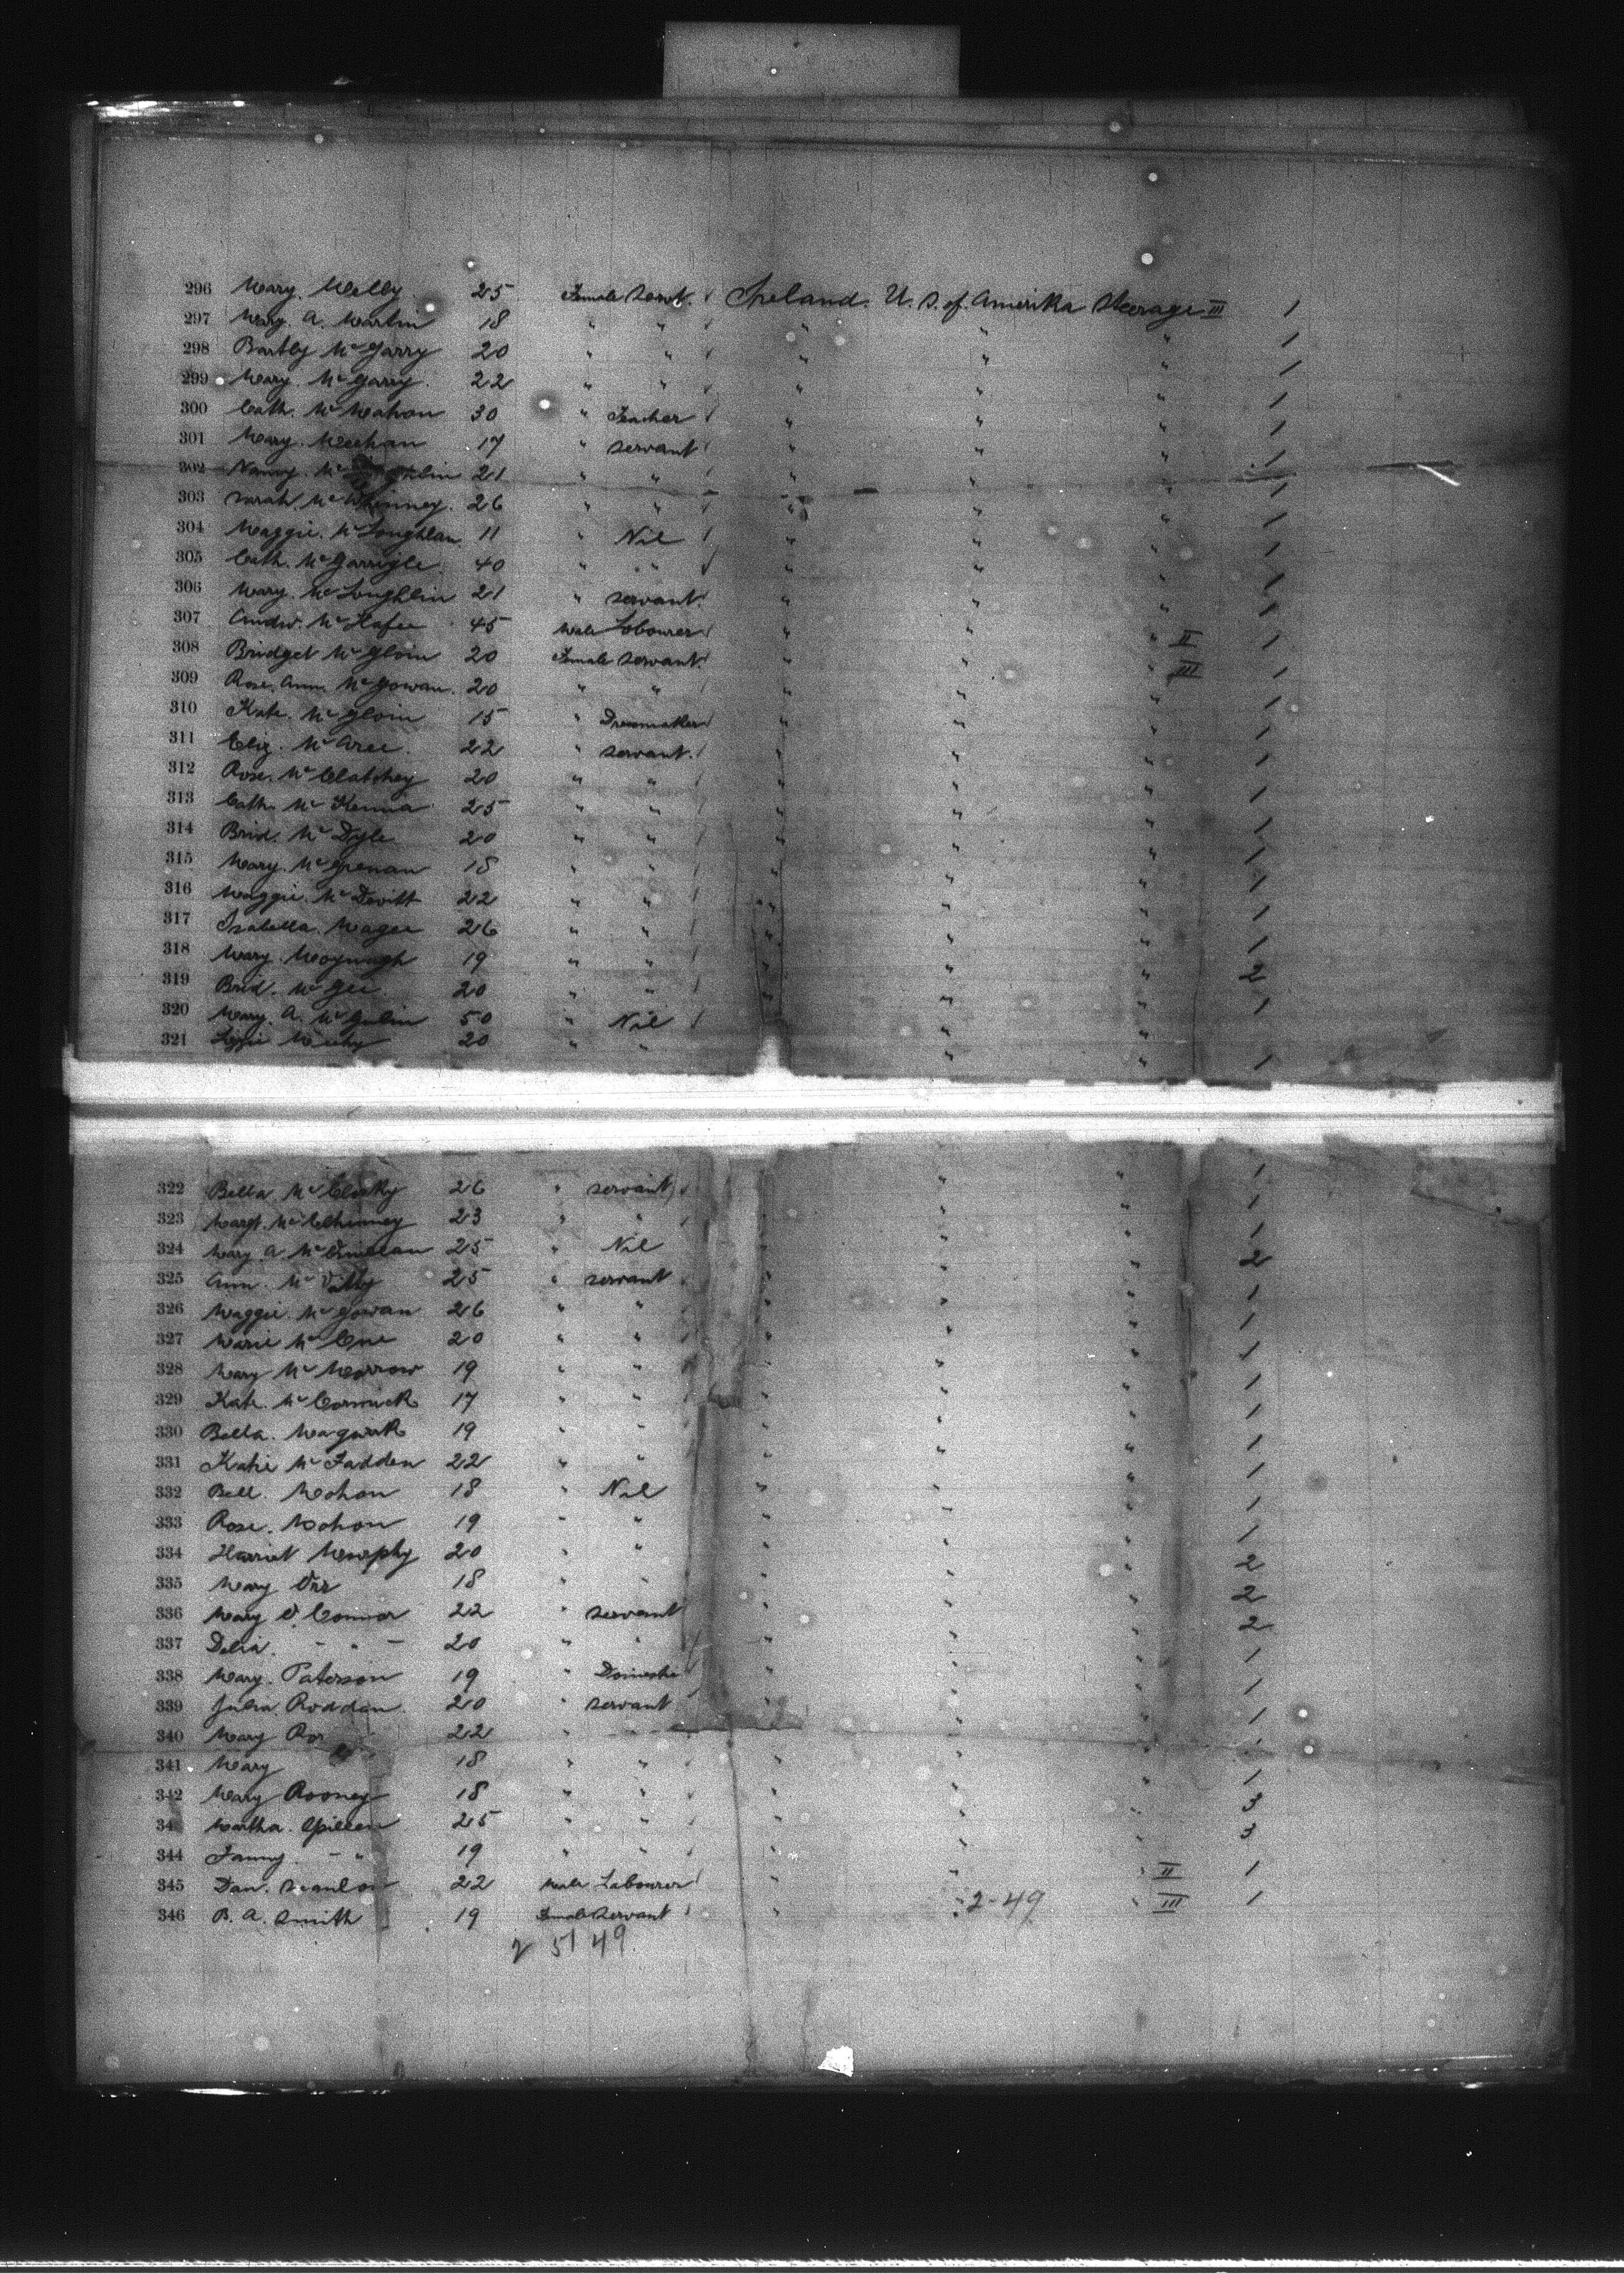 296 Mary. Melly. 25 Female Servt. Ireland. U. S. of. Amerika Steerage III 1
297 Mary. A. Martin 18 " " " " " 1
298 Bartly McGarry 20 " " " " " 1
299 Mary. McGarry. 22 " " " " " 1
300 Cath. McMahon 30 " Teacher " " " 1
301 Mary. Meehan 17 " servant " " " 1
302 Nanny. 21 " " " " " 1
303 Sarah. 26 " " " " " 1
304 Maggie. McLoughlan. 11 " Nil " " " 1
305 Cath. McGarrigle. 40 " " " " " 1
306 Mary. McLoughlin 21 " servant. " " " 1
307 Andw. McHafee 45 Male Labourer " " " II 1
308 Bridget McGloin 20 Female servant. " " " III 1
309 Rose. Ann. McGowan. 20 " " " " " 1
310 Kate. McGloin 15 " Dressmaker " " " 1
311 Eliz. McAree. 22 " servant. " " " 1
312 Rose. McClatchey 20 " " " " " 1
313 Cath. McKenna 25 " " " " " 1
314 Brid. McDyle 20 " " " " " 1
315 Mary. 18 " " " " " 1
316 Maggie. McDevitt 22 " " " " " 1
317 Isabella. Magee 26 " " " " " 1
318 Mary. 19 " " " " " 2
319 Brid. McGee. 20 " " " " " 1
320 Mary. A. 50 " Nil " " "
321 Lizzie 20 " " " " 1
322 Bella McClosky 26 " servant " " 1
323 Margt. 23 " " " " " 1
324 Mary A. 25 " Nil " " " 2
325 Ann. 25 " servant " " " 1
326 Maggie. McGowan 26 " " " " " 1
327 Marie McCue 20 " " " " " 1
328 Mary McMorrow 19 " " " " " 1
329 Kate. McCormick 17 " " " " " 1
330 Bella. 19 " " " " " 1
331 Katie McFadden 22 " " " " " 1
332 Bell. Mohan 18 " Nil " " " 1
333 Rose. Mohon 19 " " " " " 1
334 Harriet Murphy 20 " " " " " 2
335 Mary Orr 18 " " " " " 2
336 Mary O'Connor 22 " servant " " " 2
337 Delia. - " - 20 " " " " " 1
338 Mary. Paterson 19 " Domestic " " " 1
339 Julia Roddan. 20 " servant " " " 1
340 Mary 22 " " " "
341 Mary 18 " " " " " 1
342 Mary Rooney 18 " " " " " 3
34 Martha. 25 " " " " " 3
344 Fanny. - " 19 " " " " "
345 Dan. Scanlon 22 Male Labourer " " " II 1
346 B. A. Smith 19 Female Servant " 2-49 " III 1
51 49.